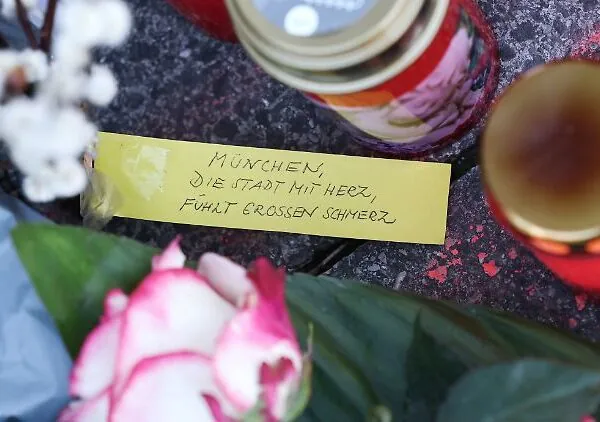 MÜNCHEN,
DIE STADT MIT HERZ,
FÜHLT GROSSEN SCHMERZ